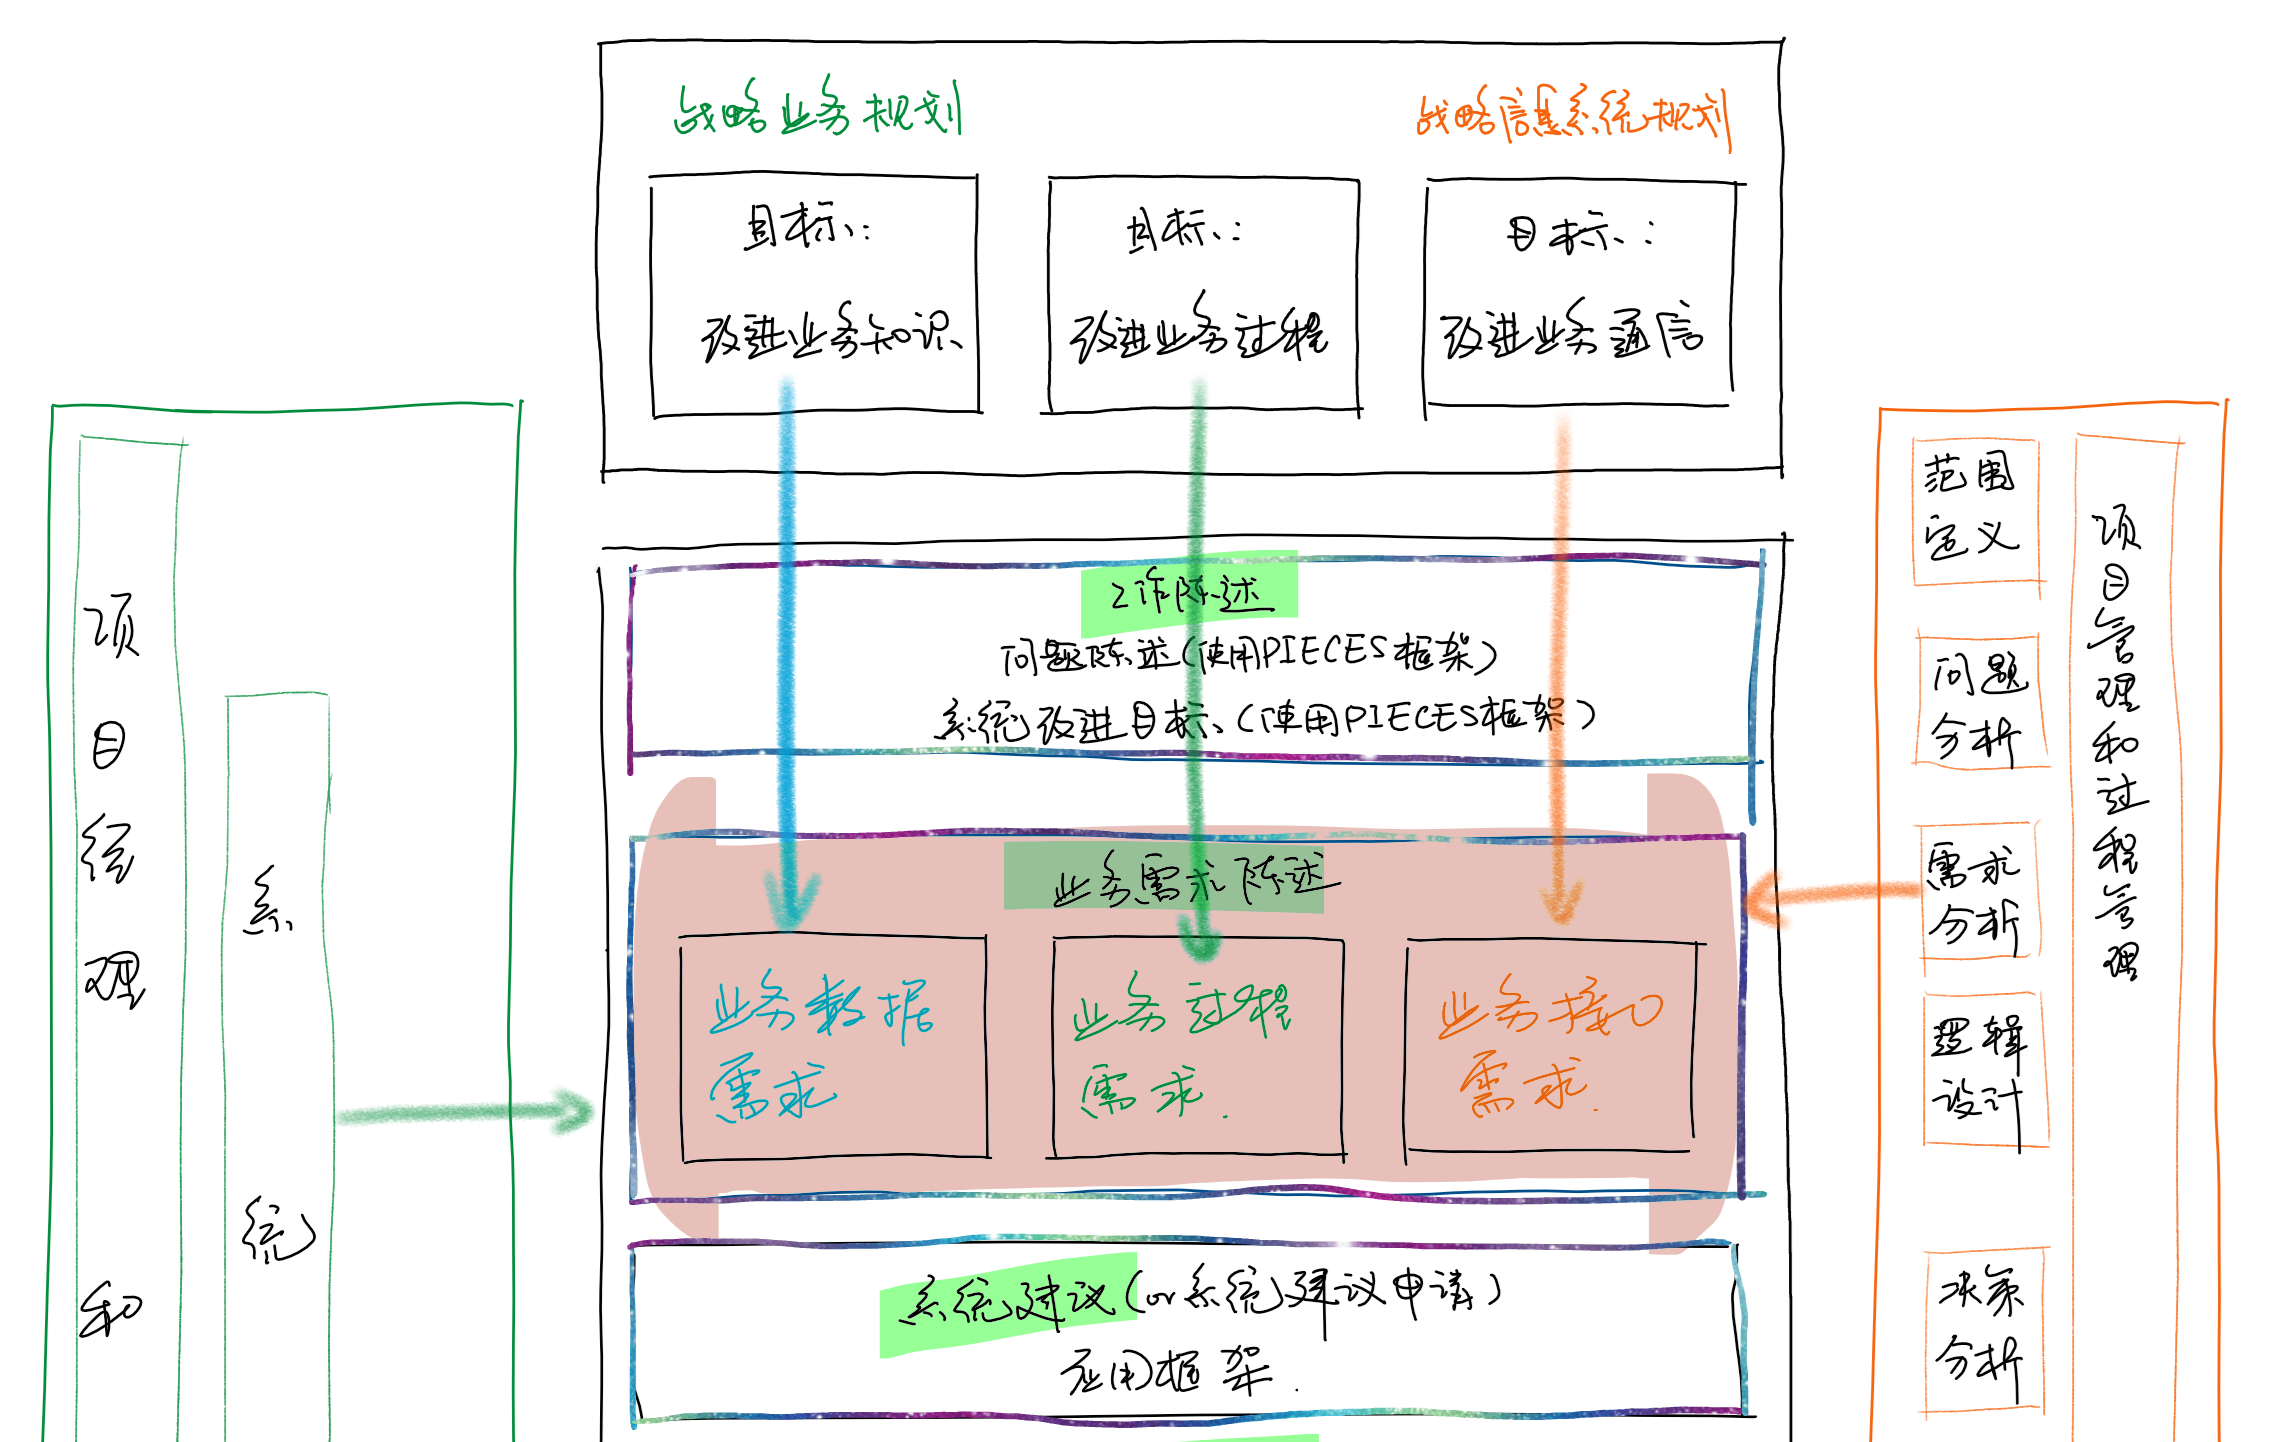 战略业务规划
战略信息系统规划
目标:
改进业务知识
目标:
改进业务过程
目标:
改进业务通信
工作陈述
问题陈述(使用PIECES框架)
系统改进目标(使用PIECES框架)
业务需求陈述
业务数据
需求
业务过程
需求.
业务接口
需求.
系统建议(or系统建议申请)
应用框架.
项目经理和
系统
范围
定义
问题
分析
需求
分析
逻辑
设计
决策
分析
项目管理和过程管理